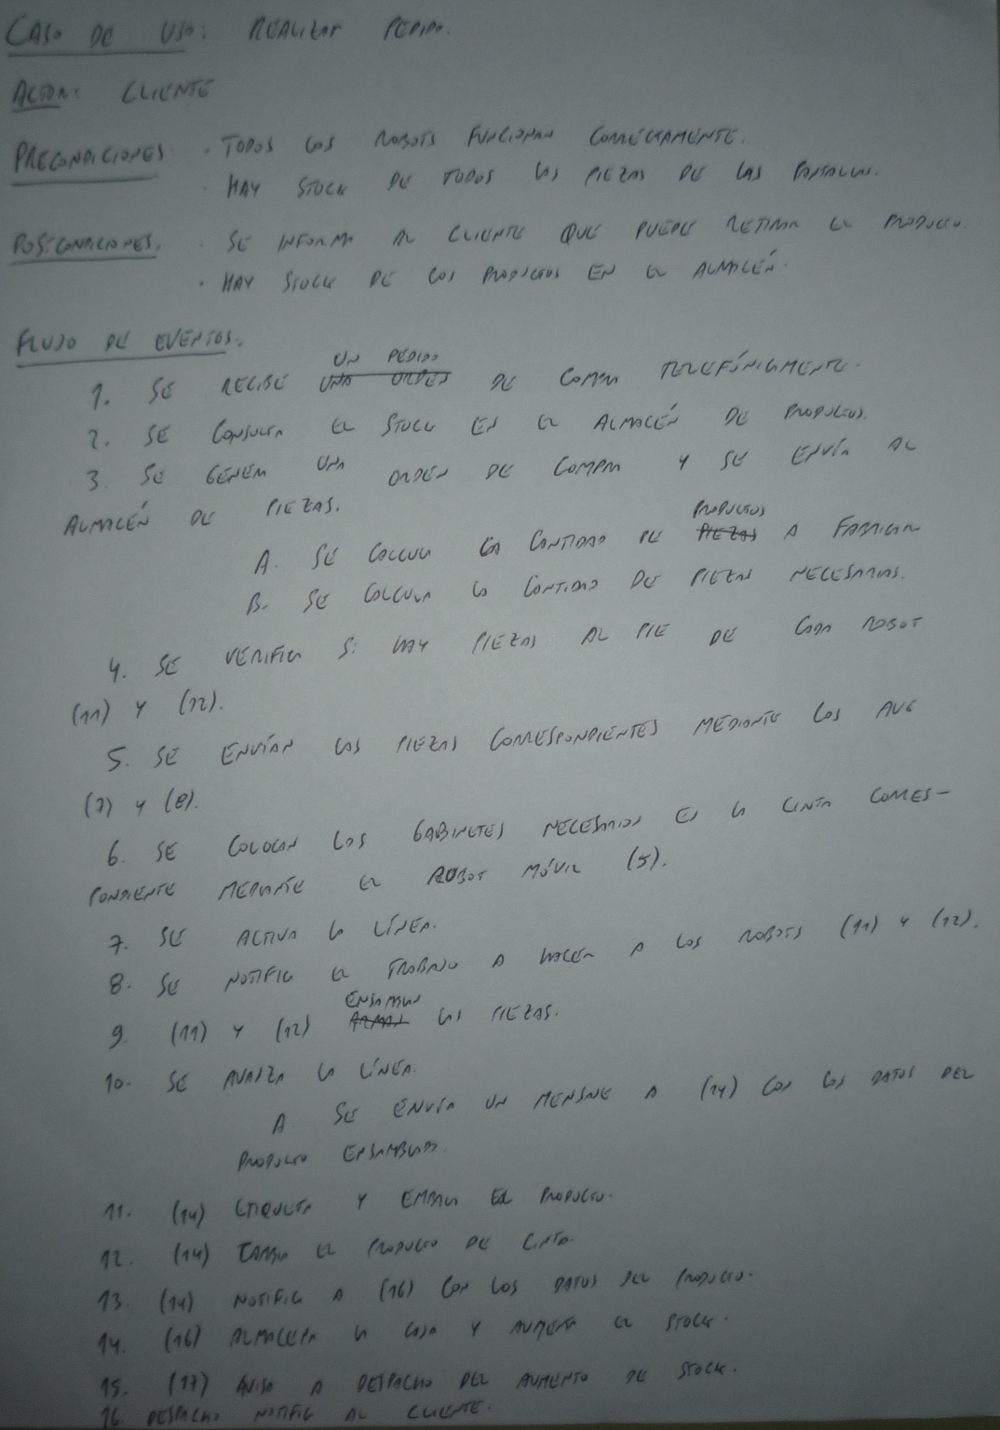 CASO DE USO: REALIZAR PEDIDO.
ACTOR: CLIENTE
PRECONDICIONES · TODOS LOS ROBOTS FUNCIONAN CORRECTAMENTE.
· HAY STOCK DE TODOS LAS PIEZAS DE LAS PANTALLAS.
POSTCONDICIONES. · SE INFORMO AL CLIENTE QUE PUEDE RETIRAR EL PRODUCTO.
· HAY STOCK DE LOS PRODUCTOS EN EL ALMACÉN.
FLUJO DE EVENTOS.
UN PEDIDO
1. SE RECIBE UNA ORDEN DE COMPRA TELEFÓNICAMENTE.
2. SE CONSULTA EL STOCK EN EL ALMACÉN DE PRODUCTOS.
3. SE GENERA UNA ORDEN DE COMPRA Y SE ENVÍA AL
ALMACÉN DE PIEZAS.
PRODUCTOS
A. SE CALCULA LA CANTIDAD DE PIEZAS A FABRICAR
B. SE CALCULA LA CANTIDAD DE PIEZAS NECESARIAS.
4. SE VERIFICA SI HAY PIEZAS AL PIE DE CADA ROBOT
(11) Y (12).
5. SE ENVÍAN LAS PIEZAS CORRESPONDIENTES MEDIANTE LOS AVG
(7) Y (8).
6. SE COLOCAN LOS GABINETES NECESARIOS EN LA CINTA CORRES-
PONDIENTE MEDIANTE EL ROBOT MÓVIL (5).
7. SE ACTIVA LA LÍNEA.
8. SE NOTIFICA EL TRABAJO A HACER A LOS ROBOTS (11) Y (12).
ENSAMBLAN
9. (11) Y (12) ARMAN LAS PIEZAS.
10. SE AVANZA LA LÍNEA.
A SE ENVÍA UN MENSAJE A (14) CON LOS DATOS DEL
PRODUCTO ENSAMBLADO.
11. (14) ETIQUETA Y EMBALA EL PRODUCTO.
12. (14) CAMBIA EL PRODUCTO DE CINTA.
13. (14) NOTIFICA A (16) CON LOS DATOS DEL PRODUCTO.
14. (16) ALMACENA LA CAJA Y AUMENTA EL STOCK.
15. (17) AVISA A DESPACHO DEL AUMENTO DE STOCK.
16 DESPACHO NOTIFICA AL CLIENTE.